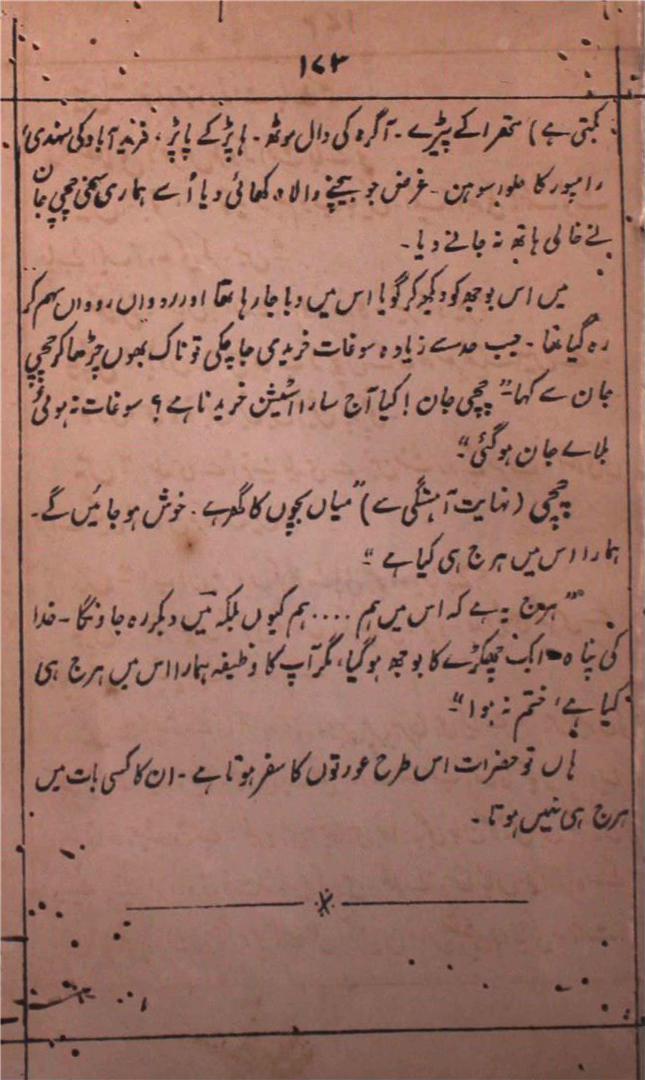 ۱۷۳
بکتی ہے) متھرا کے پیڑے۔ آگرہ کی دال موٹھ۔ ہاپڑ کے پاپڑ، فرید آباد کی مہندی،
رامپور کا حلوہ سوہن۔ غرض جو بیچنے والا دکھائی دیا اُسے ہماری سخی چچی جان
نے خالی ہاتھ نہ جانے دیا۔
میں اس بوجھ کو دیکھ کر گویا اس میں دبا جا رہا تھا اور رواں رواں سہم کر
رہ گیا تھا۔ جب حد سے زیادہ سوغات خریدی جا چکی تو ناک بھوں چڑھا کر چچی
جان سے کہا "چچی جان! کیا آج سارا اسٹیشن خریدنا ہے؟ سوغات نہ ہوئی
بلائے جان ہوگئی"۔
چچی (نہایت آہستگی سے) "میاں بچوں کا گھر ہے۔ خوش ہو جائیں گے۔
ہمارا اس میں ہرج ہی کیا ہے"
"ہرج یہ ہے کہ اس میں ہم .... ہم کیوں بلکہ مَیں دبکر رہ جاونگا۔ خدا
کی پناہ ایک چھکڑے کا بوجھ ہوگیا، مگر آپ کا وظیفہ ہمارا اس میں ہرج ہی
کیا ہے، ختم نہ ہوا"۔
ہاں تو حضرات اس طرح عورتوں کا سفر ہوتا ہے۔ ان کا کسی بات میں
ہرج ہی نہیں ہوتا۔